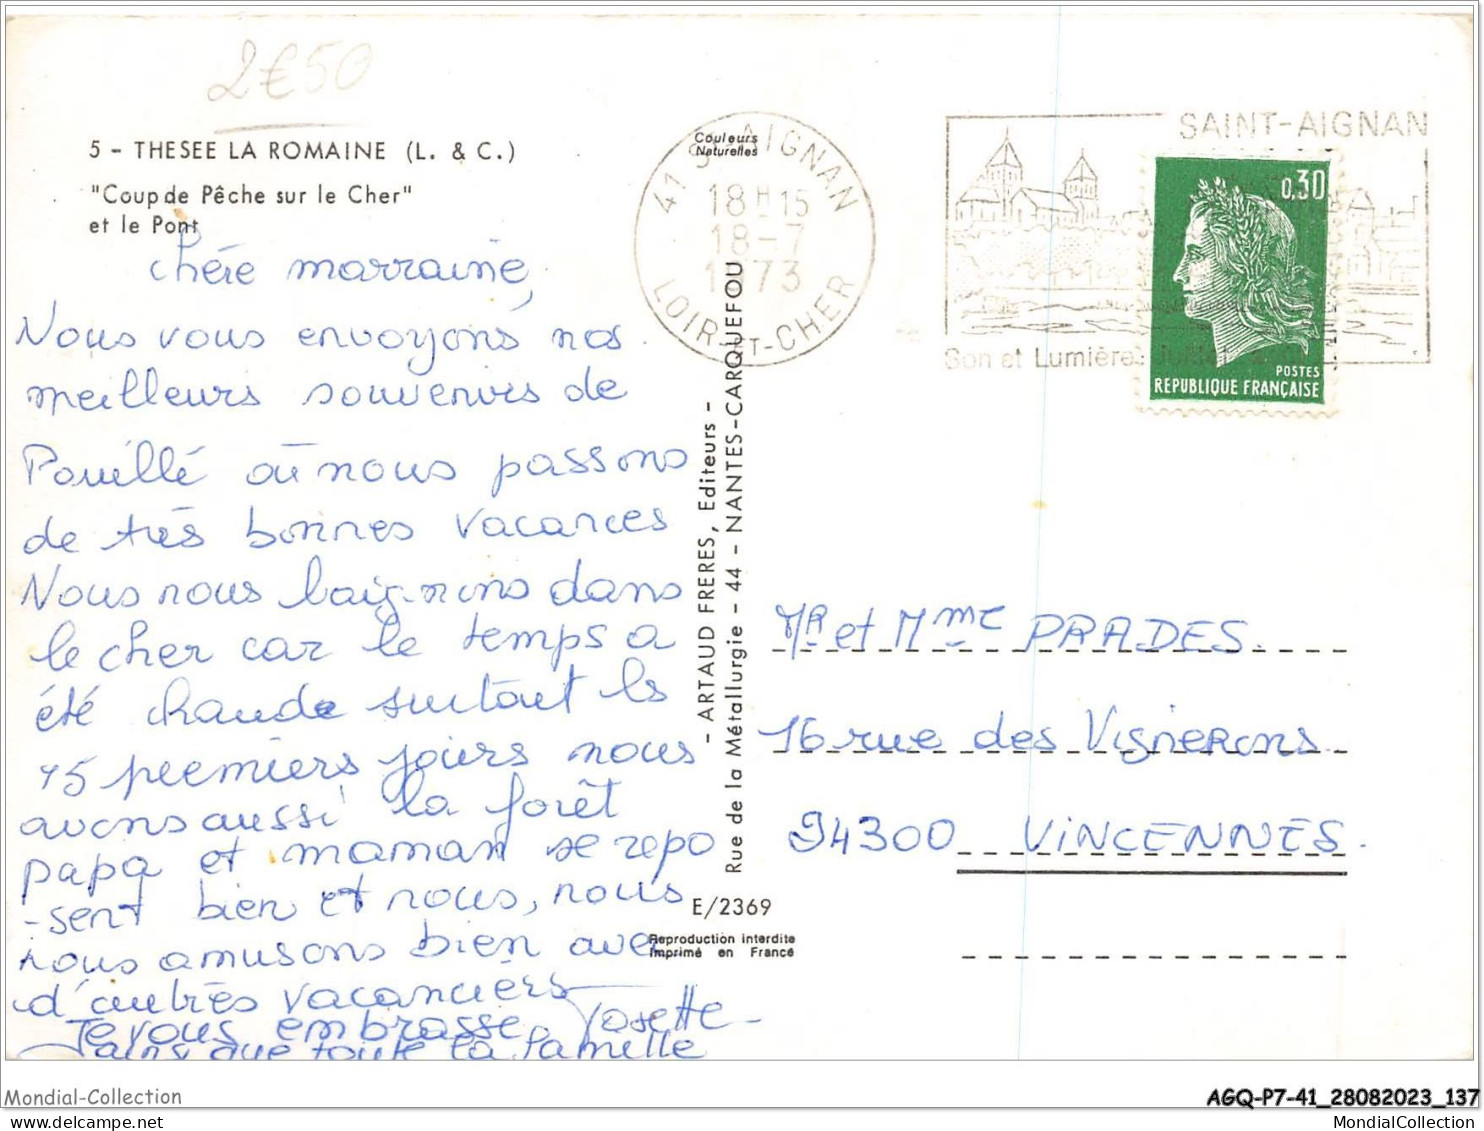 2€50
5 - THESEE LA ROMAINE (L. & C.)
"Coup de Pêche sur le Cher"
et le Pont
Couleurs
Naturelles
41 ST AIGNAN
18H15
18-7
1973
LOIR-ET-CHER
SAINT-AIGNAN
Son et Lumière: Juillet
0,30
POSTES
REPUBLIQUE FRANÇAISE
chére marraine,
Nous vous envoyons nos
meilleurs souvenirs de
Pouillé où nous passons
de très bonnes vacances
Nous nous baignons dans
le cher car le temps a
été chaude surtout les
15 premiers jours nous
avons aussi la forêt
papa et maman se repo
-sent bien et nous, nous
nous amusons bien avec
d'autres vacanciers
Je vous embrasse Josette
ainsi que toute la famille
- ARTAUD FRERES, Editeurs -
Rue de la Métallurgie - 44 - NANTES-CARQUEFOU
E/2369
Reproduction interdite
Imprimé en France
Mr et Mme PRADES.
16 rue des Vignerons
94300 VINCENNES.
Mondial-Collection
AGQ-P7-41_28082023_137
MondialCollection